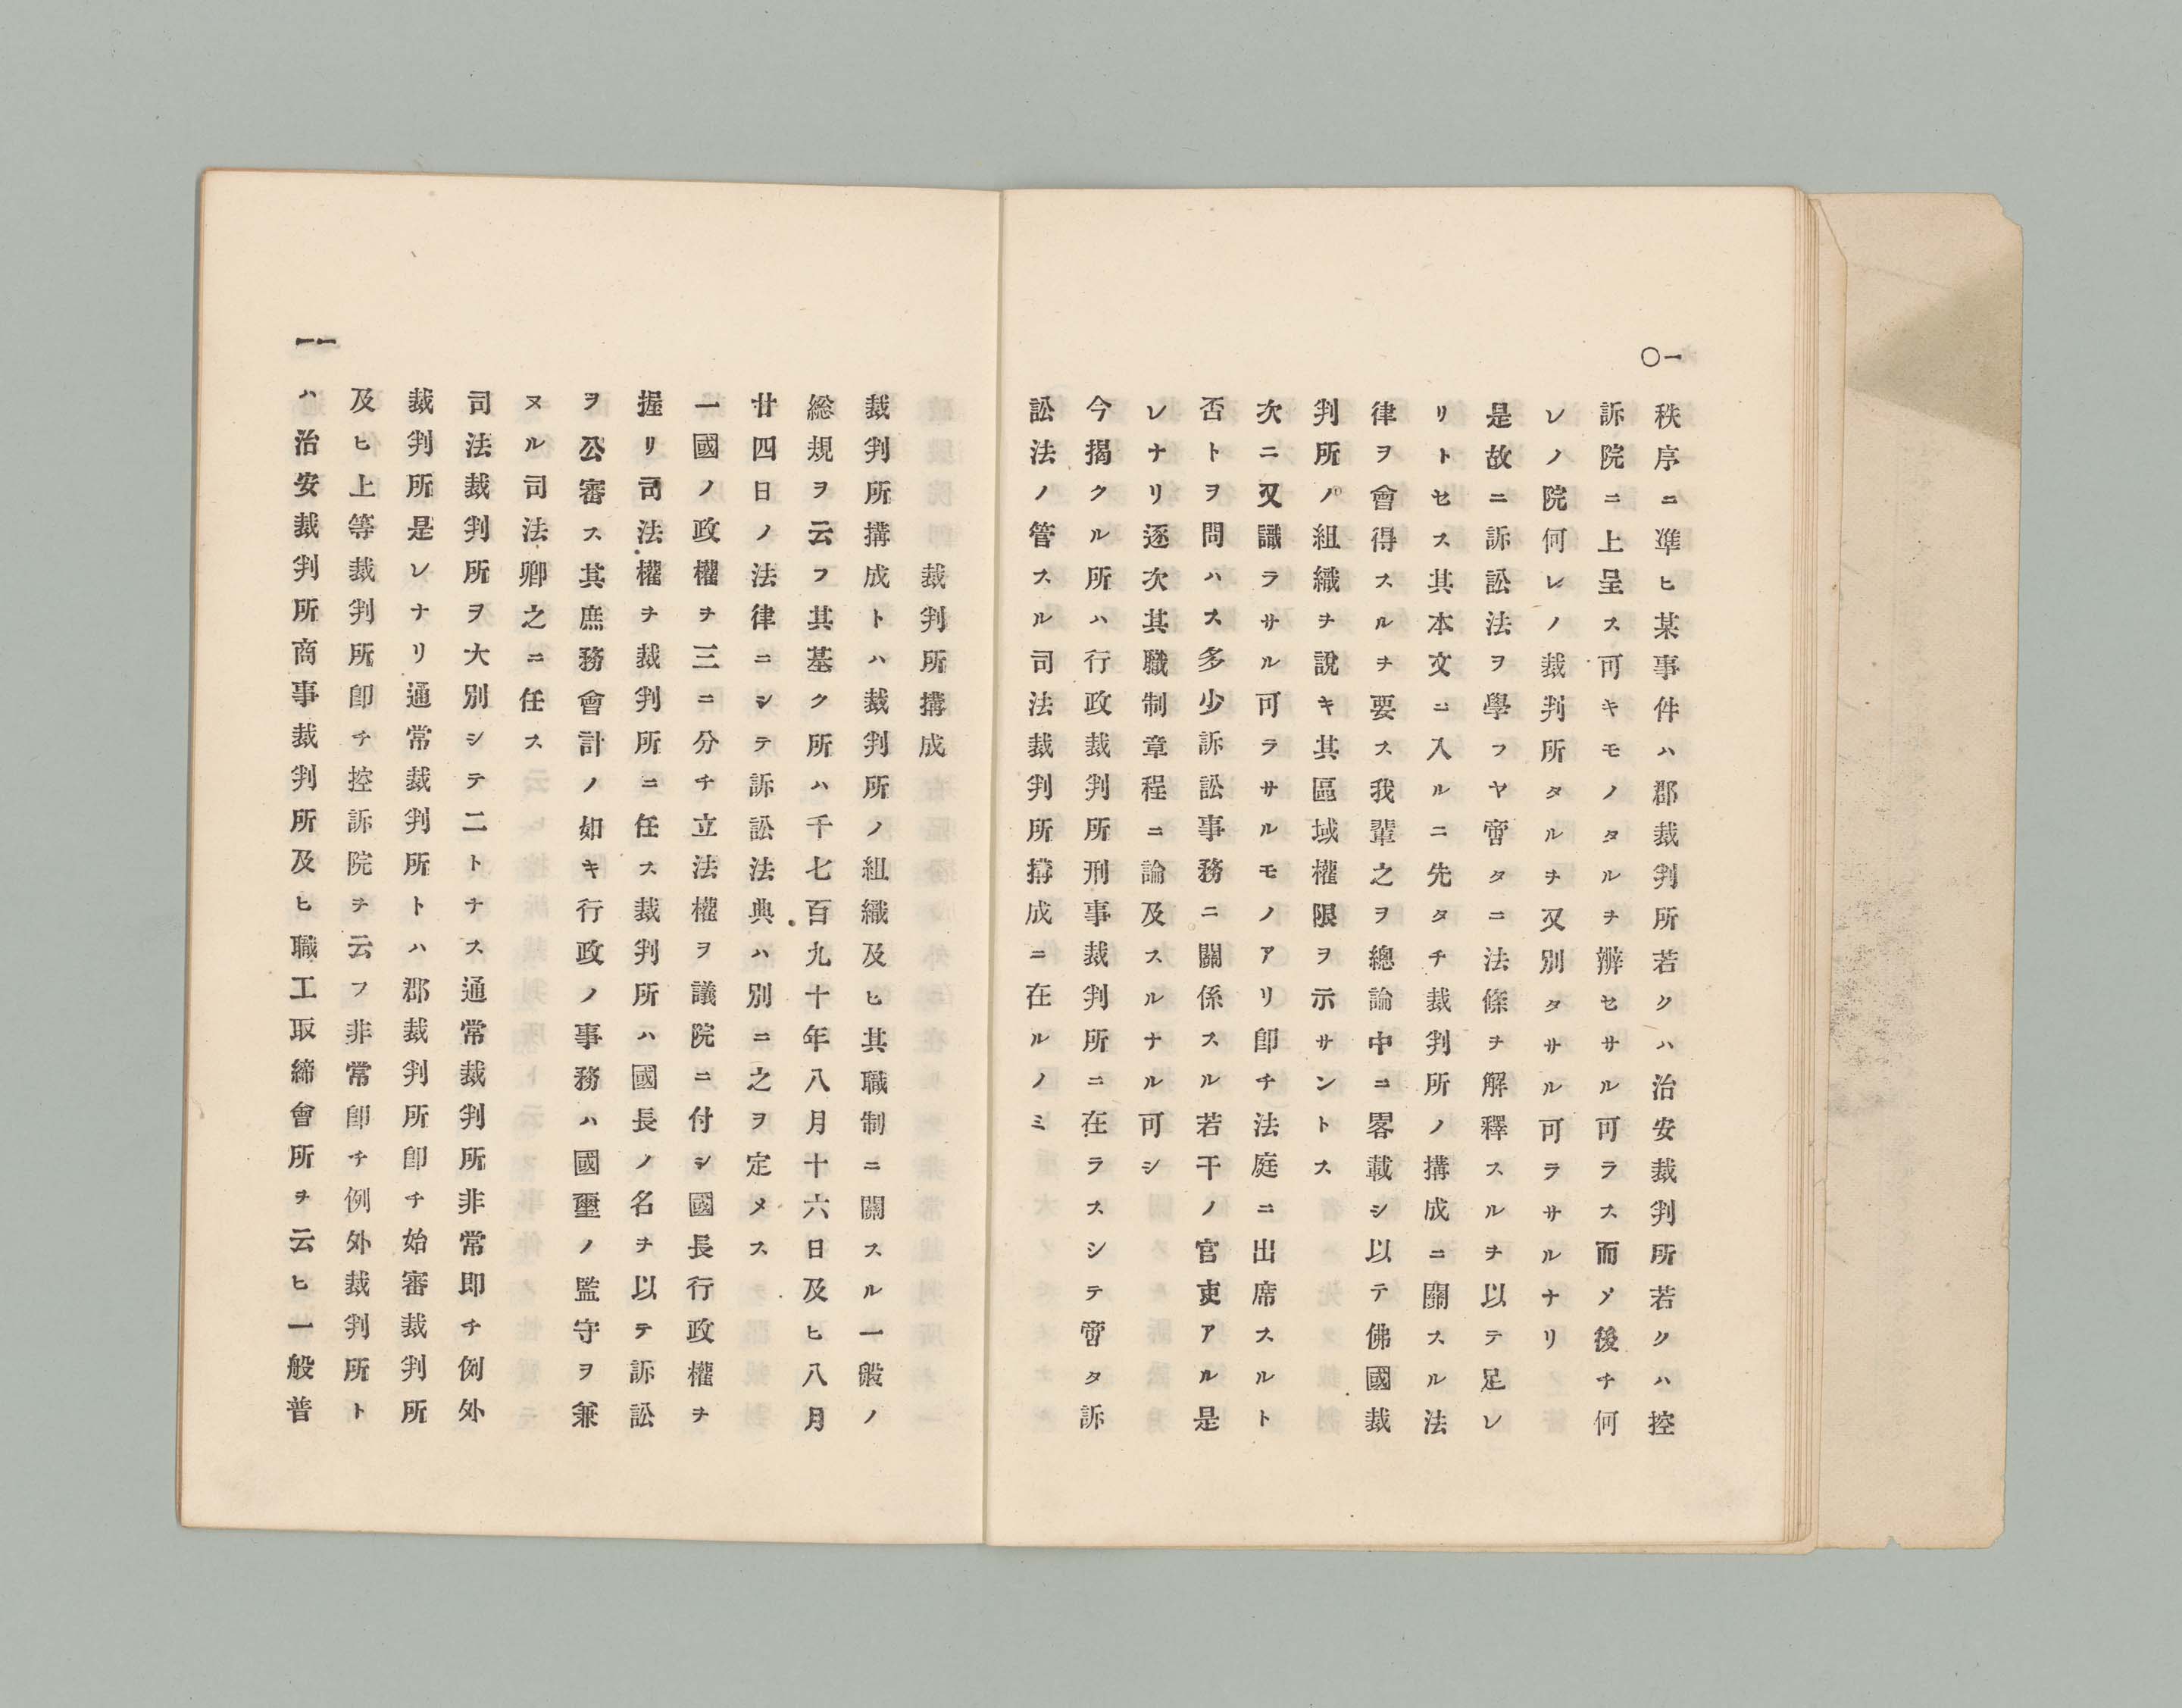 一〇
秩序ニ準ヒ某事件ハ郡裁判所若クハ治安裁判所若クハ控
訴院ニ上呈ス可キモノタルヲ辨セサル可ラス而メ後チ何
レノ院何レノ裁判所タルヲ又別タサル可ラサルナリ
是故ニ訴訟法ヲ學フヤ啻タニ法條ヲ解釋スルヲ以テ足レ
リトセス其本文ニ入ルニ先タチ裁判所ノ搆成ニ關スル法
律ヲ會得スルヲ要ス我輩之ヲ總論中ニ畧載シ以テ佛國裁
判所ノ組織ヲ說キ其區域權限ヲ示サントス
次ニ又識ラサル可ラサルモノアリ卽チ法庭ニ出席スルト
否トヲ問ハス多少訴訟事務ニ關係スル若干ノ官吏アル是
レナリ逐次其職制章程ニ論及スルナル可シ
今揭クル所ハ行政裁判所刑事裁判所ニ在ラスシテ啻タ訴
訟法ノ管スル司法裁判所搆成ニ在ルノミ
裁判所搆成
裁判所搆成トハ裁判所ノ組織及ヒ其職制ニ關スル一般ノ
総規ヲ云フ其基ク所ハ千七百九十年八月十六日及ヒ八月
廿四日ノ法律ニシテ訴訟法典ハ別ニ之ヲ定メス
一國ノ政權ヲ三ニ分チ立法權ヲ議院ニ付シ國長行政權ヲ
握リ司法權ヲ裁判所ニ任ス裁判所ハ國長ノ名ヲ以テ訴訟
ヲ公審ス其庶務會計ノ如キ行政ノ事務ハ國璽ノ監守ヲ兼
ヌル司法卿之ニ任ス
司法裁判所ヲ大別シテ二トナス通常裁判所非常卽チ例外
裁判所是レナリ通常裁判所トハ郡裁判所卽チ始審裁判所
及ヒ上等裁判所卽チ控訴院ヲ云フ非常卽チ例外裁判所ト
ハ治安裁判所商事裁判所及ヒ職工取締會所ヲ云ヒ一般普
一一